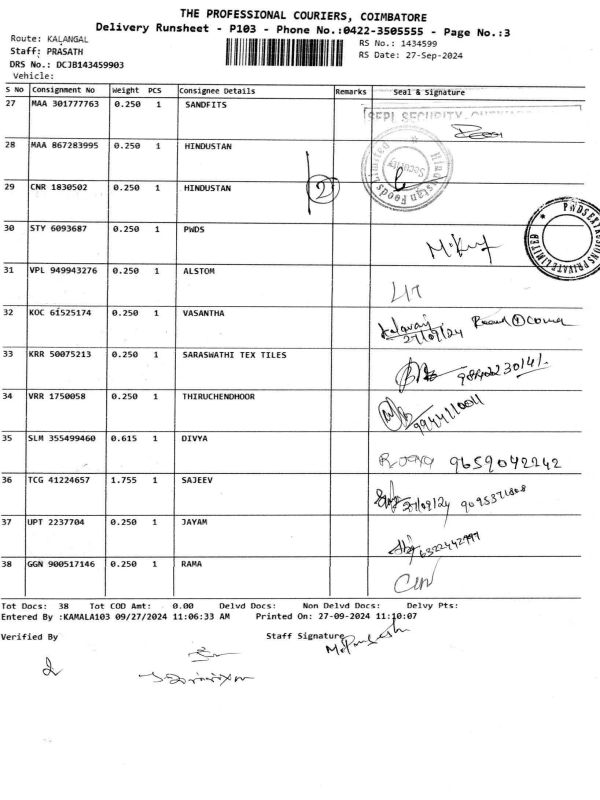 THE PROFESSIONAL COURIERS, COIMBATORE
Delivery Runsheet - P103 - Phone No.:0422-3505555 - Page No.:3
Route: KALANGAL
RS No.: 1434599
Staff: PRASATH
RS Date: 27-Sep-2024
DRS No.: DCJB143459903
Vehicle:
S No Consignment No Weight PCS Consignee Details Remarks Seal & Signature
27 MAA 301777763 0.250 1 SANDFITS
SEPL SECURITY,
28 MAA 867283995 0.250 1 HINDUSTAN
Hindustan Foods Limited
Security
29 CNR 1830502 0.250 1 HINDUSTAN
2
30 STY 6093687 0.250 1 PWDS
PWDS EXTRUSIONS PRIVATE LIMITED
31 VPL 949943276 0.250 1 ALSTOM
32 KOC 61525174 0.250 1 VASANTHA
27/09/24
33 KRR 50075213 0.250 1 SARASWATHI TEX TILES
34 VRR 1750058 0.250 1 THIRUCHENDHOOR
35 SLM 355499460 0.615 1 DIVYA
9659042242
36 TCG 41224657 1.755 1 SAJEEV
27/09/24
37 UPT 2237704 0.250 1 JAYAM
38 GGN 900517146 0.250 1 RAMA
Tot Docs: 38 Tot COD Amt: 0.00 Delvd Docs: Non Delvd Docs: Delvy Pts:
Entered By :KAMALA103 09/27/2024 11:06:33 AM Printed On: 27-09-2024 11:10:07
Verified By Staff Signature